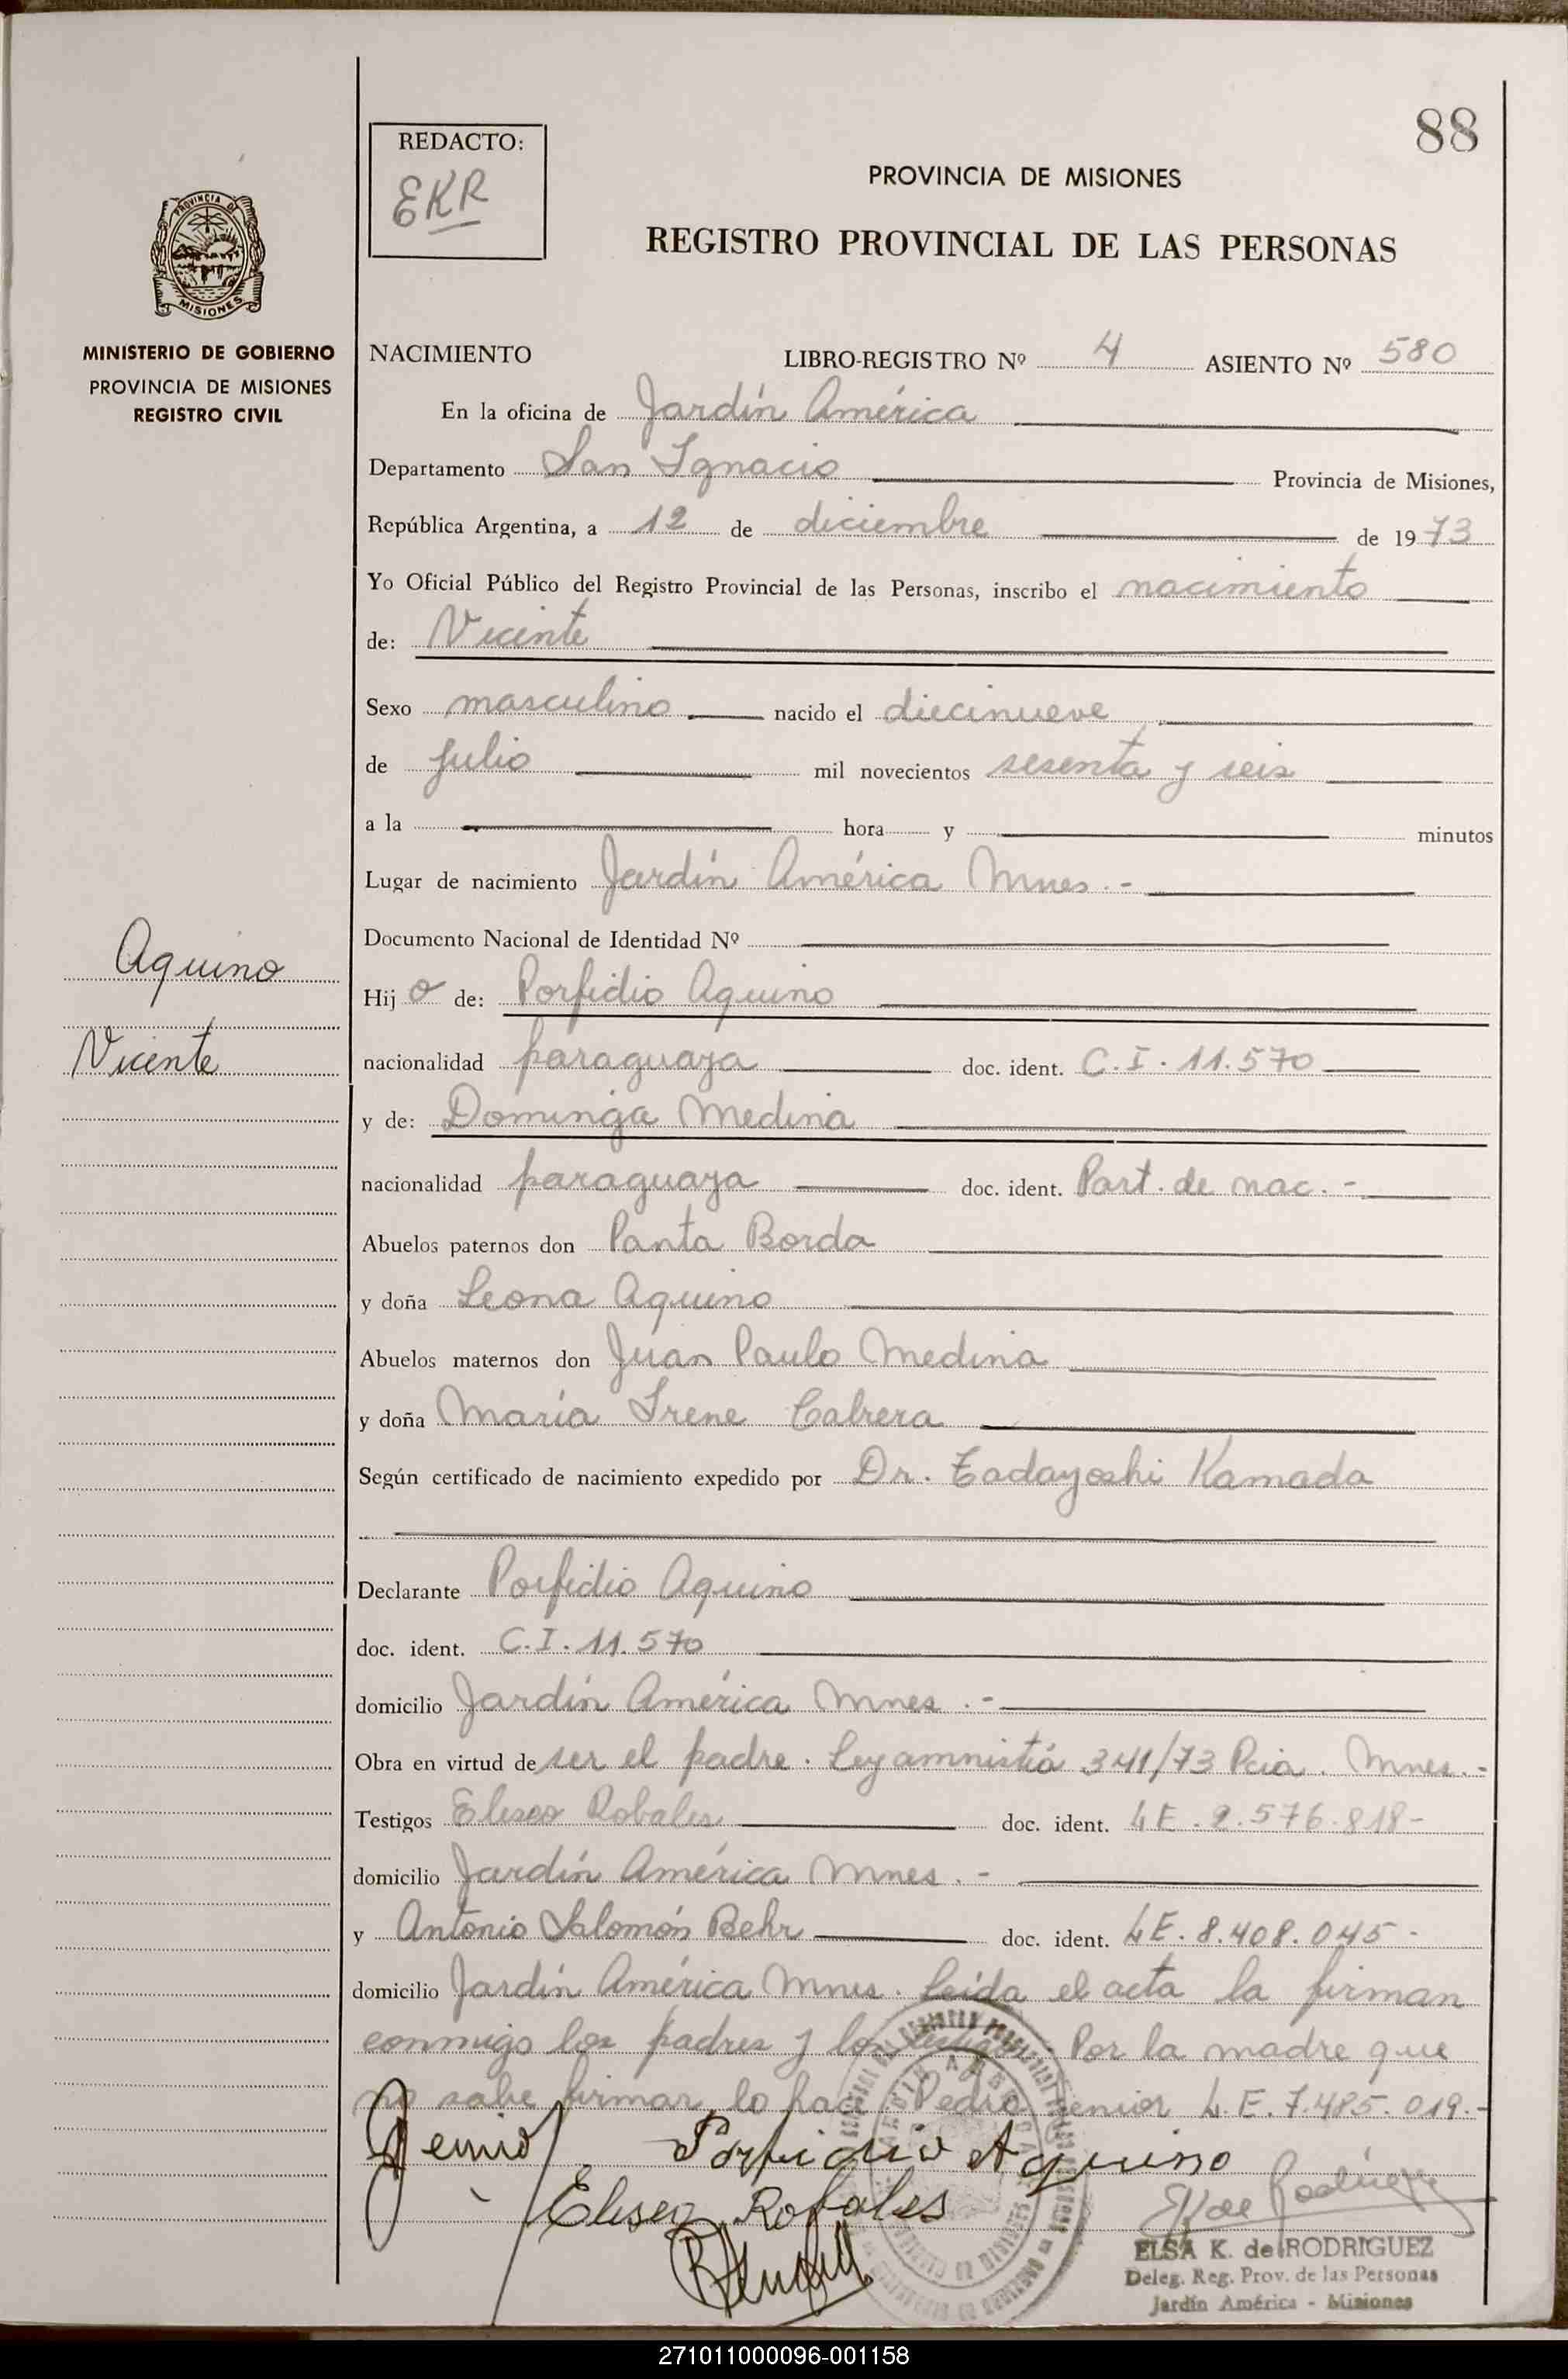 88
REDACTO:
EKR
PROVINCIA DE MISIONES
REGISTRO PROVINCIAL DE LAS PERSONAS
PROVINCIA DE
MISIONES
MINISTERIO DE GOBIERNO
PROVINCIA DE MISIONES
REGISTRO CIVIL
NACIMIENTO LIBRO-REGISTRO Nº 4 ASIENTO Nº 580
En la oficina de Jardín América
Departamento San Ignacio Provincia de Misiones,
República Argentina, a 12 de diciembre de 1973
Yo Oficial Público del Registro Provincial de las Personas, inscribo el nacimiento
de: Vicente
Sexo masculino nacido el diecinueve
de julio mil novecientos sesenta y seis
a la hora y minutos
Lugar de nacimiento Jardín América Mnes.-
Documento Nacional de Identidad Nº
Aquino
Vicente
Hijo de: Porfidio Aquino
nacionalidad paraguaya doc. ident. C.I. 11.570
y de: Dominga Medina
nacionalidad paraguaya doc. ident. Part. de nac.-
Abuelos paternos don Panta Borda
y doña Leona Aquino
Abuelos maternos don Juan Paulo Medina
y doña María Irene Cabrera
Según certificado de nacimiento expedido por Dr. Tadayoshi Kamada
Declarante Porfidio Aquino
doc. ident. C.I. 11.570
domicilio Jardín América Mnes.-
Obra en virtud de ser el padre. Ley amnistía 341/73 Pcia. Mnes.-
Testigos Eliseo Robales doc. ident. LE. 2.576.818-
domicilio Jardín América Mnes.-
y Antonio Salomón Behr doc. ident. LE. 8.408.045-
domicilio Jardín América Mnes. Leída el acta la firman
conmigo los padres y los testigos. Por la madre que
no sabe firmar, lo hace Pedro Genier L.E. 7.485.019.-
Porfidio Aquino
Eliseo Robales
ELSA K. de RODRIGUEZ
Deleg. Reg. Prov. de las Personas
Jardín América - Misiones
271011000096-001158